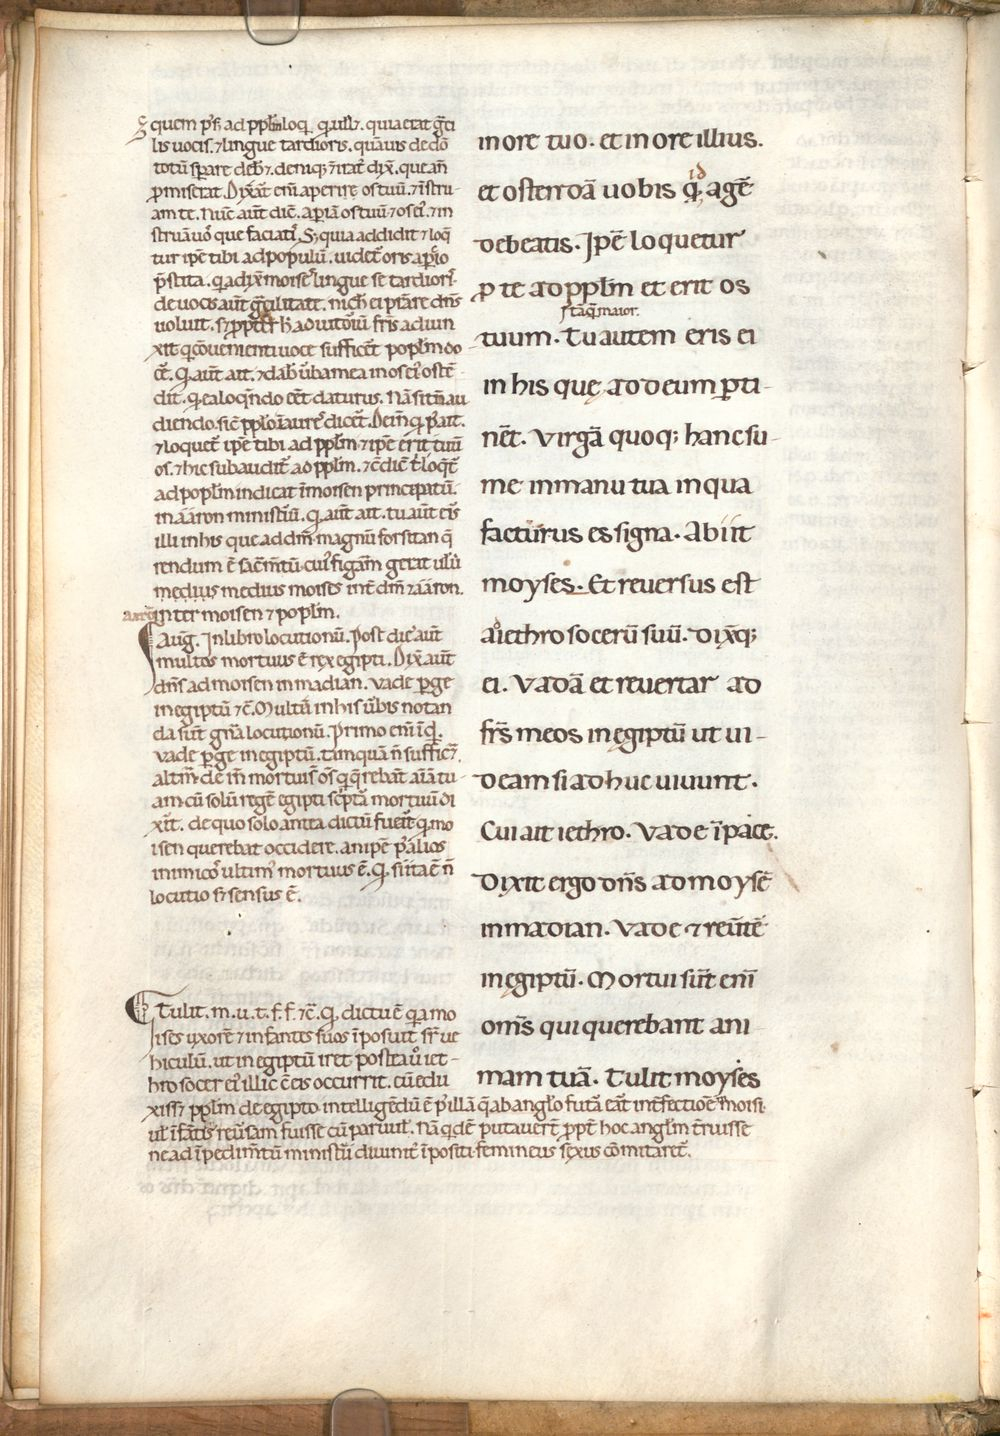 quem p̄s̄ ad pp̄lm loq̄. q̄a ill̄e. quia erat ḡci
lis uocis. ⁊ lingue tardioris. quāuis de dō
totū sperare deb&. deniq; ⁊ trat̄ dix̄. que an̄
p̄miserat. Dixāt eni aperire os tuū. ⁊ istru
am te. Nūc aūt dic̄. apiā os tuū ⁊ os ei'. ⁊ in
struā uō' que faciatis. S; quia addidit ⁊ loq̄
tur ipē tibi ad populū. uidet̄ oris apiō
p̄stita. q̄a dix̄ moises lingue se tardioris.
de uocis aūt ḡcilitate. nich̄ ei p̄stare dn̄s
uoluit. s; p̄pt̄ h̄ adiutoriū fr̄is adiun
xit q̄ cōuenienti uoce suffic̄et popl̄m do
c̄e. Q̄ aūt ait. ⁊ dab' ūba mea in os ei' ostē
dit. q̄ ea loq̄ndo c̄et daturus. Nā si tm̄ au
diendo. sic̄ pp̄lo ī aure' dic̄et. Dein̄ q̄ p̄' ait.
⁊ loquet̄ ipē tibi ad pp̄lm ⁊ ipē erit tuū
os. ⁊ hic subaudit̄ ad pp̄lm. ⁊ c̄ dic̄ t̄ loq̄t̄
ad popl̄m indicat ī moisen principatū.
in aaron ministiū. Q̄ aūt ait. tu aūt eis
illi in his que ad dm̄. magnū forsitan q̄
rendum ē sacm̄tū. cui' figam̄ gerat ulū
medius medius moises int̄ dm̄ ⁊ aaron.
⁊ aaron inter moisen ⁊ popl̄m.
Aug. In libro locutionū. Post dies aūt
multos mortuus ē rex egipti. Dix̄ aūt
dn̄s ad moisen in madian. vade p̄ge
in egiptū ⁊c̄. Multa in his ūbis notan
da sunt gn̄a locutionū. Primo eni id q̄.
vade p̄ge in egiptū. tanquā n̄ suffic̄et
altm̄. de in̄ mortui s̄ os̄ q̄ q̄rebāt aīā tu
am. cū solū regē egipti sc̄ptā mortuū di
xit. de quo solo antea dictū fuerit q̄ mo
isen querebat occidere. an ipē p̄' alios
inimico' ultim' mortuus ē. Q̄ si ita ē n̄
locutio s; sensus ē.
Tulit. m. u. t. f. f. ⁊c̄. Q̄ dictū ē q̄a mo
ises uxorē ⁊ infantes suos iposuit sr̄ ue
hiculū. ut in egiptū iret. postea u° iet
hro socer ei' illic c̄ eis occurrit. cū edu
xiss& pp̄lm de egipto. intelligēdū ē p' illā q̄ ab anglō futā erat intfectioē moisi
ul' ifātis reūsam fuisse cū paruul'. Nā q̄dē putauert p̄pt̄ hoc anglm̄ t̄ruisse
ne ad ipedimtū ministii diuini. ipositi femineus sexus comitaret̄.
in ore tuo. et in ore illius.
et ostendā uobis q̄id agē
debeatis. Ipē loquetur
p̄ te ad pp̄lm et erit os
s̄ tāq̄ maior.
tuum. Tu autem eris ei
in his quę ad deum p̄ti-
nēt. Virgā quoq; hanc su-
me in manu tua in qua
facturus es signa. Abiit
moyses. Et reuersus est
ad iethro socerū suū. dixq;
ei. Vadā et reuertar ad
frs̄ meos in egiptū ut ui-
deam si adhuc uiuunt.
Cui ait iethro. Vade ī pace.
Dixit ergo dn̄s ad moysē
in madian. Vade ⁊ reūtē
in egiptū. Mortui sūt enī
omn̄s qui querebant ani
mam tuā. Tulit moyses